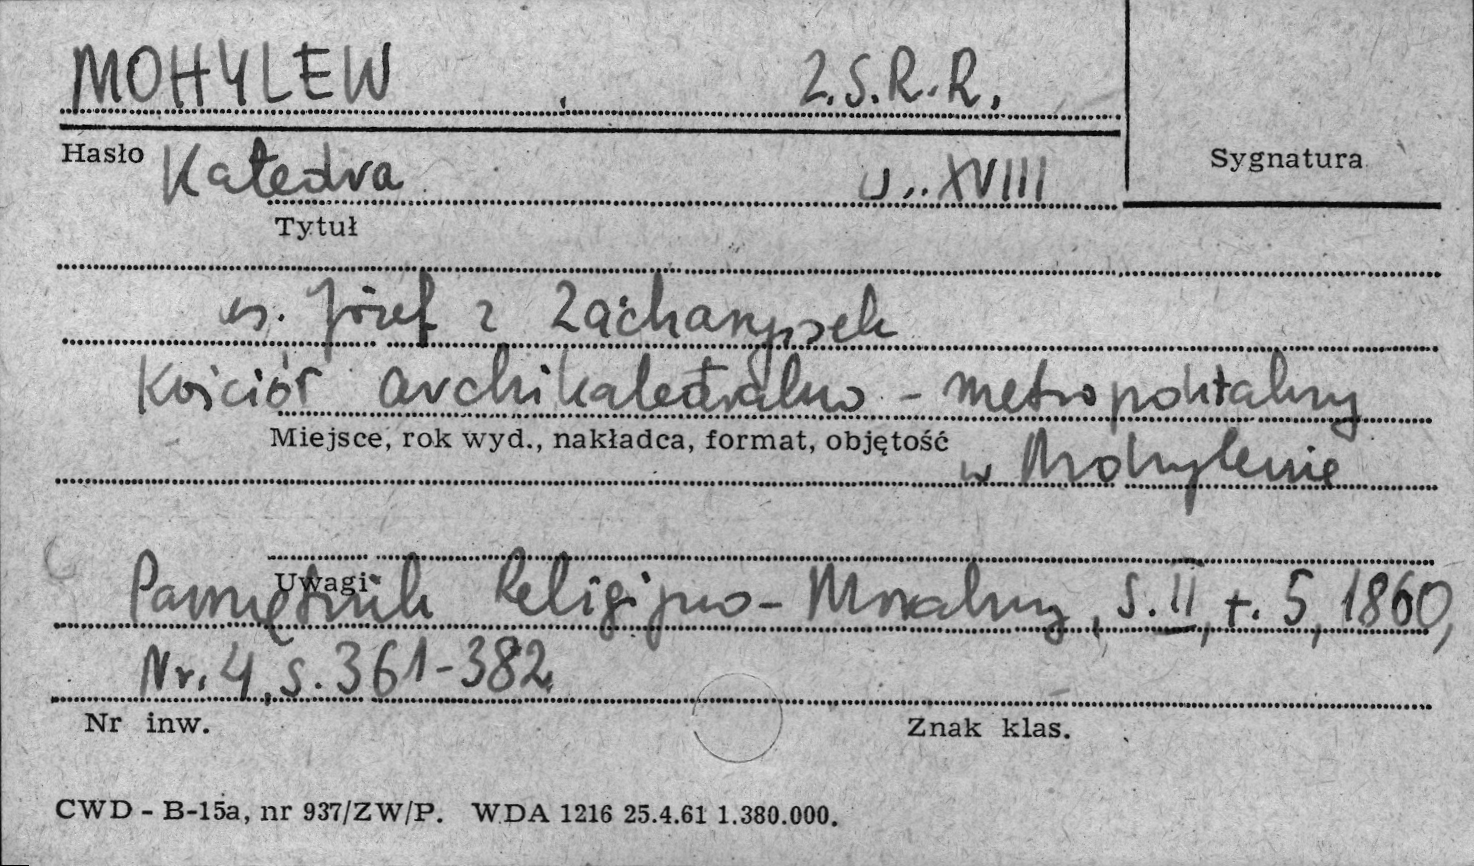 MOHYLEW Z.S.R.R.
Hasło Katedra w. XVIII
Sygnatura
Tytuł
Józef z
Kościół archikatedralno - metropolitalny
Miejsce, rok wyd., nakładca, format, objętość
w Mohylewie
Uwagi
Pamiętnik Religijno - Moralny, s. II, t. 5, 1860,
Nr. 4, s. 361-382
Nr inw. Znak klas.
CWD - B-15a, nr 937/ZW/P. WDA 1216 25.4.61 1.380.000.